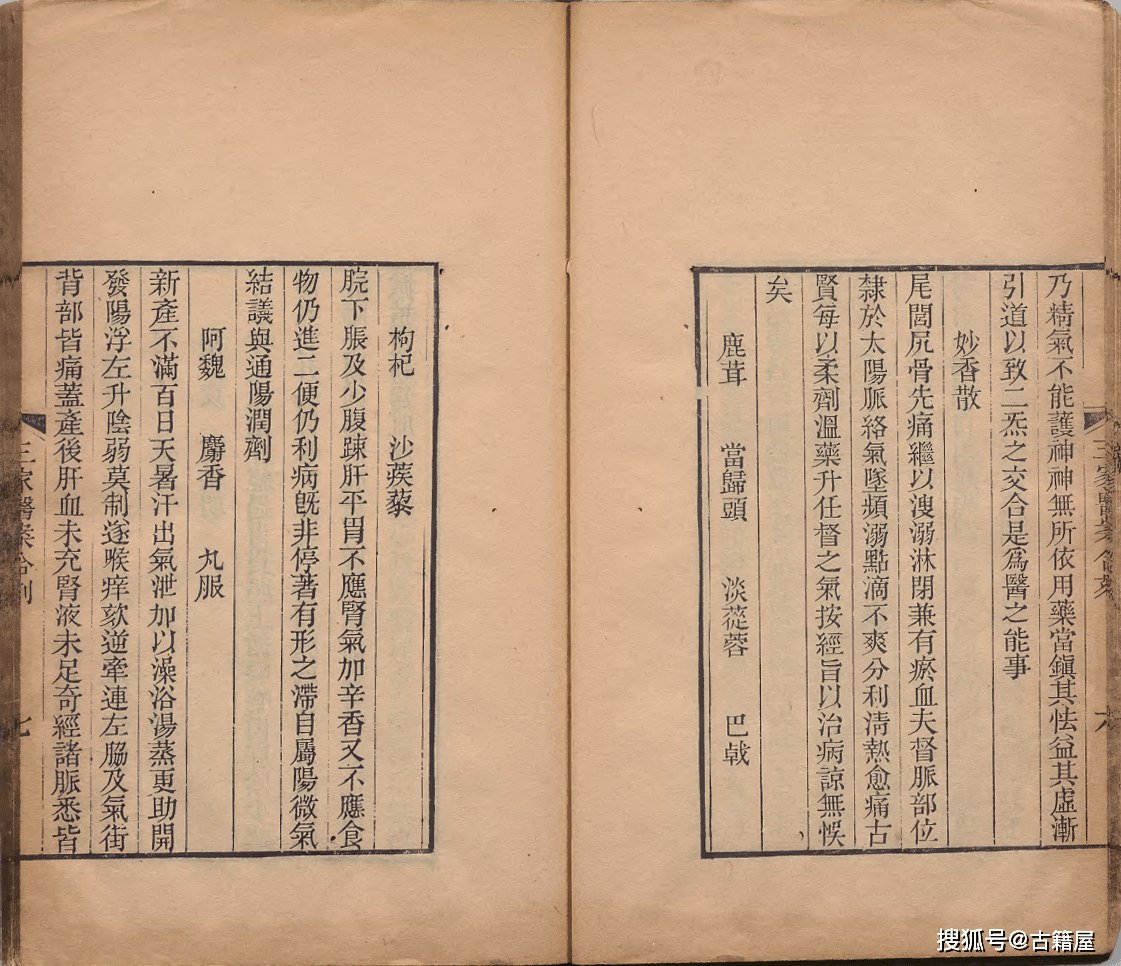 乃精氣不能護神神無所依用藥當鎮其怯益其虛漸
引道以致二炁之交合是爲醫之能事
妙香散
尾閭尻骨先痛繼以溲溺淋閉兼有瘀血夫督脈部位
隸於太陽脈絡氣墜頻溺點滴不爽分利淸熱愈痛古
賢每以柔劑溫藥升任督之氣按經旨以治病諒無悞
矣
鹿茸 當歸頭 淡蓯蓉 巴戟
枸杞 沙蒺藜
脘下脹及少腹踈肝平胃不應腎氣加辛香又不應食
物仍進二便仍利病旣非停著有形之滯自屬陽微氣
結議與通陽潤劑
阿魏 麝香 丸服
新產不滿百日天暑汗出氣泄加以澡浴湯蒸更助開
發陽浮左升陰弱莫制遂喉痒欬逆牽連左脇及氣街
背部皆痛蓋產後肝血未充腎液未足奇經諸脈悉皆
三家醫案合刻
七
三家醫案合刻
六
搜狐号@古籍屋